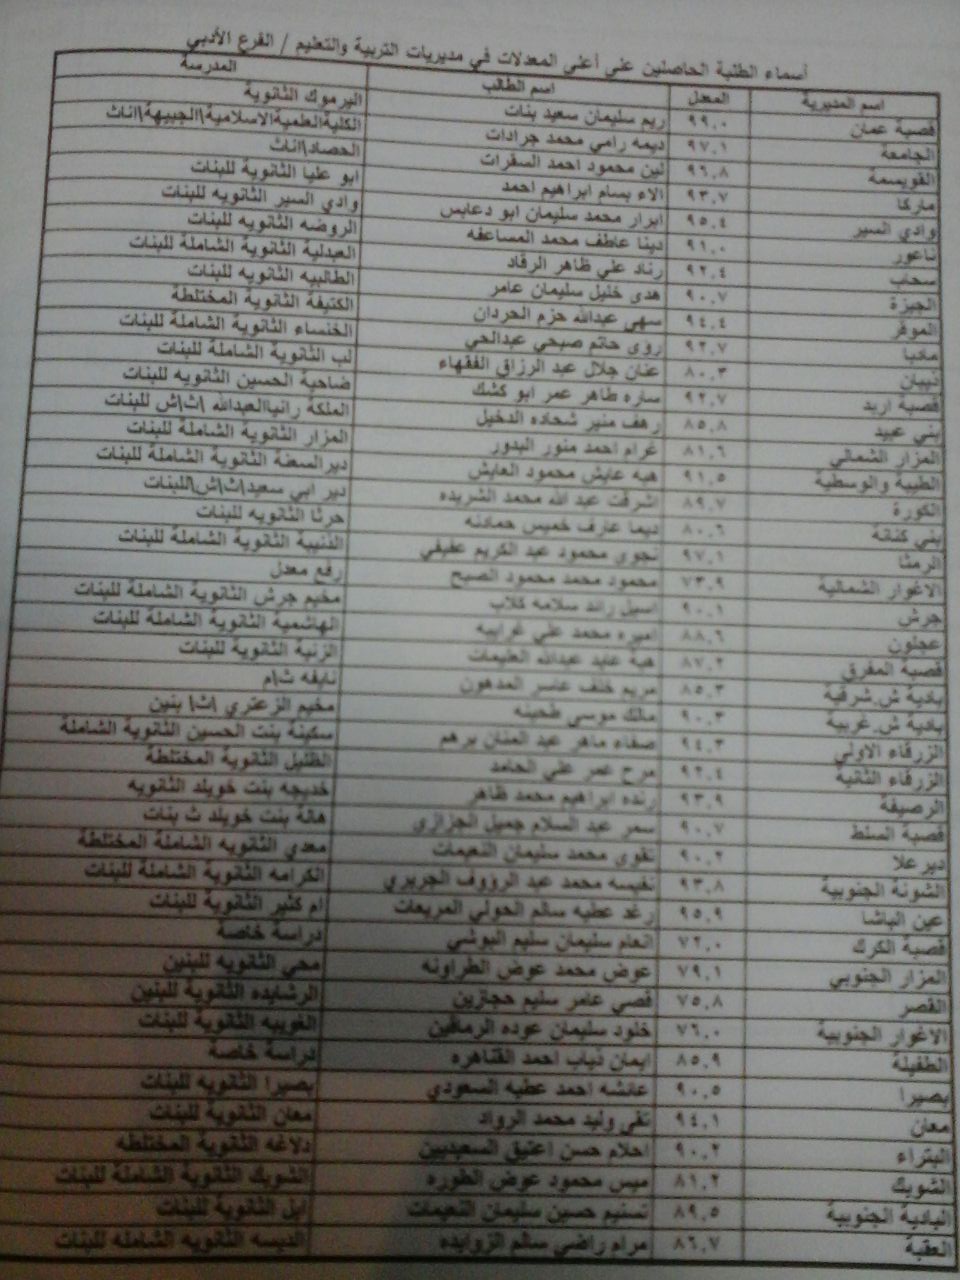 أسماء الطلبة الحاصلين على أعلى المعدلات في مديريات التربية والتعليم / الفرع الأدبي
اسم المديرية المعدل اسم الطالب المدرسة
قصبة عمان ٩٩.٠ ريم سليمان سعيد بنات اليرموك الثانوية
الجامعة ٩٧.١ ديمه رامي محمد جرادات الكلية العلمية الاسلامية\الجبيهة\اناث
القويسمة ٩٦.٨ لين محمود احمد السقرات الحصاد\اناث
ماركا ٩٣.٧ الاء بسام ابراهيم احمد ابو عليا الثانوية للبنات
وادي السير ٩٥.٤ ابرار محمد سليمان ابو دعابس وادي السير الثانويه للبنات
ناعور ٩١.٠ دينا عاطف محمد المساعفه الروضه الثانويه للبنات
سحاب ٩٢.٤ رناد علي ظاهر الرقاد العبدلية الثانوية الشاملة للبنات
الجيزة ٩٠.٧ هدى خليل سليمان عامر الطالبيه الثانويه للبنات
الموقر ٩٤.٤ سهى عبدالله حزم الحردان الكتيفة الثانوية المختلطة
مادبا ٩٢.٧ روى حاتم صبحي عبدالحي الخنساء الثانوية الشاملة للبنات
ذيبان ٨٠.٣ عنان جلال عبد الرزاق الفقهاء لب الثانوية الشاملة للبنات
قصبة اربد ٩٢.٧ ساره طاهر عمر ابو كشك ضاحية الحسين الثانويه للبنات
بني عبيد ٨٥.٨ رهف منير شحاده الدخيل الملكة رانيا العبدالله \ث\ش للبنات
المزار الشمالي ٨١.٦ غرام احمد منور البدور المزار الثانوية الشاملة للبنات
الطيبة والوسطية ٩١.٥ هبه عايش محمود العايش ديرالسعنة الثانوية الشاملة للبنات
الكورة ٨٩.٧ اشرقت عبد الله محمد الشريده دير ابي سعيد\ث\ش\للبنات
بني كنانة ٨٠.٦ ديما عارف خميس حمادنه حرثا الثانويه للبنات
الرمثا ٩٧.١ نجوى محمود عبد الكريم عفيفي الذنيبة الثانوية الشاملة للبنات
الاغوار الشمالية ٧٣.٩ محمود محمد محمود الصبح رفع معدل
جرش ٩٠.١ اسيل رائد سلامه كلاب مخيم جرش الثانوية الشاملة للبنات
عجلون ٨٨.٦ اميره محمد علي غرايبه الهاشمية الثانوية الشاملة للبنات
قصبة المفرق ٨٧.٢ هبه عايد عبدالله العليمات الزنية الثانوية للبنات
بادية ش.شرقية ٨٥.٣ مريم خلف عاسر المدهون نايفه ث\م
بادية ش.غربية ٩٠.٣ مالك موسى طحينه مخيم الزعتري \ث\ بنين
الزرقاء الاولى ٩٤.٣ صفاء ماهر عبد المنان برهم سكينة بنت الحسين الثانوية الشاملة
الزرقاء الثانية ٩٢.٤ مرح عمر علي الحامد الظليل الثانوية المختلطة
الرصيفة ٩٣.٩ رنده ابراهيم محمد ظاهر خديجه بنت خويلد الثانويه
قصبة السلط ٩٠.٧ سمر عبد السلام جميل الجزازي هالة بنت خويلد ث بنات
ديرعلا ٩٠.٢ تقوى محمد سليمان النعيمات معدي الثانويه الشاملة المختلطة
الشونة الجنوبية ٩٣.٨ نفيسه محمد عبد الرؤوف الجريري الكرامه الثانوية الشاملة للبنات
عين الباشا ٩٥.٩ رغد عطيه سالم الحولي المريعات ام كثير الثانوية للبنات
قصبة الكرك ٧٢.٠ انعام سليمان سليم البوشي دراسة خاصة
المزار الجنوبي ٧٩.١ عوض محمد عوض الطراونه محي الثانويه للبنين
القصر ٧٥.٨ قصي عامر سليم حجازين الرشايده الثانوية للبنين
الاغوار الجنوبية ٧٦.٠ خلود سليمان عوده الرماقين الغويبه الثانوية للبنات
الطفيلة ٨٥.٩ ايمان ذياب احمد القناهره دراسة خاصة
بصيرا ٩٠.٥ عائشه احمد عطيه السعودي بصيرا الثانويه للبنات
معان ٩٤.١ تقى وليد محمد الرواد معان الثانوية للبنات
البتراء ٩٠.٢ احلام حسن اعتيق السعيديين دلاغه الثانوية المختلطه
الشوبك ٨١.٢ ميس محمود عوض الطوره الشوبك الثانوية الشاملة للبنات
البادية الجنوبية ٨٩.٥ تسنيم حسين سليمان النعيمات ايل الثانوية للبنات
العقبة ٨٦.٧ مرام راضي سالم الزوايده الديسه الثانويه الشامله للبنات